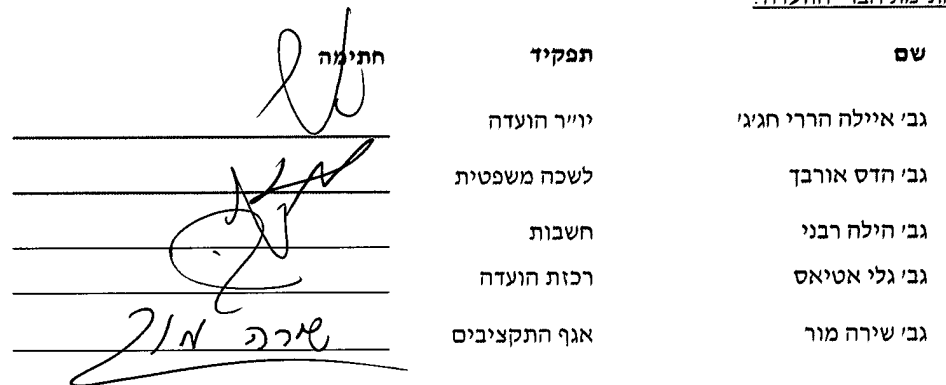 שם תפקיד חתימה
גב' איילה הררי חג'ג' יו"ר הועדה
גב' הדס אורבך לשכה משפטית
גב' הילה רבני חשבות
גב' גלי אטיאס רכזת הועדה
גב' שירה מור אגף התקציבים שירה מור